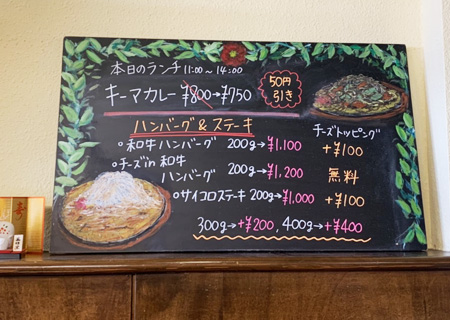 本日のランチ 11:00~14:00
キーマカレー ¥800→¥750
50円引き
ハンバーグ&ステーキ チーズトッピング
○和牛ハンバーグ 200g→¥1,100 +¥100
○チーズin和牛
ハンバーグ 200g→¥1,200 無料
○サイコロステーキ 200g→¥1,000 +¥100
300g→+¥200, 400g→+¥400